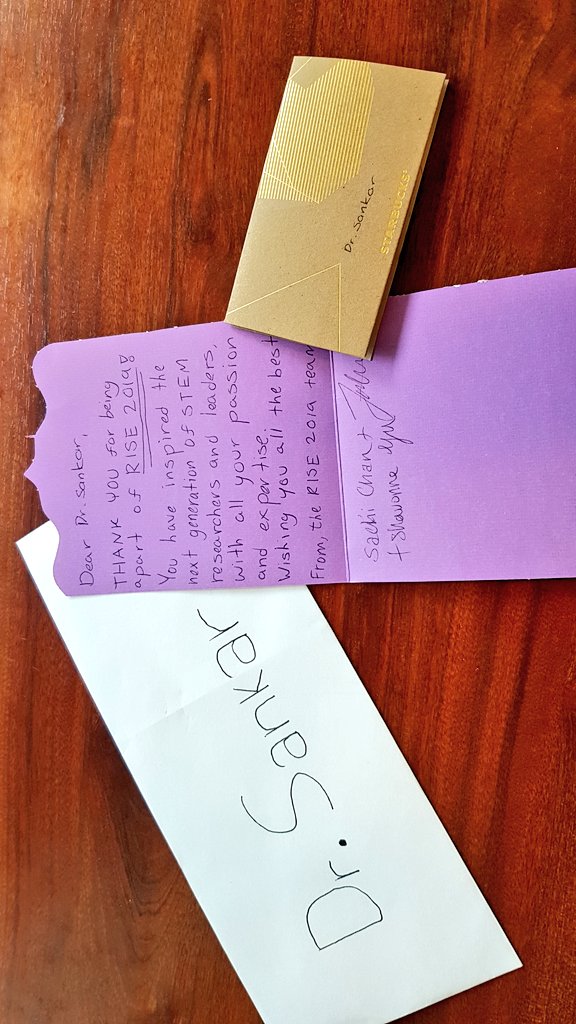 Dr. Sankar
STARBUCKS®
Dear Dr. Sankar,
THANK YOU for being
apart of RISE 2019!
You have inspired the
next generation of STEM
researchers and leaders,
with all your passion
and expertise.
Wishing you all the best
From, the RISE 2019 team
Sachi Chan +
+ Shavonne Yu
Dr. Sankar